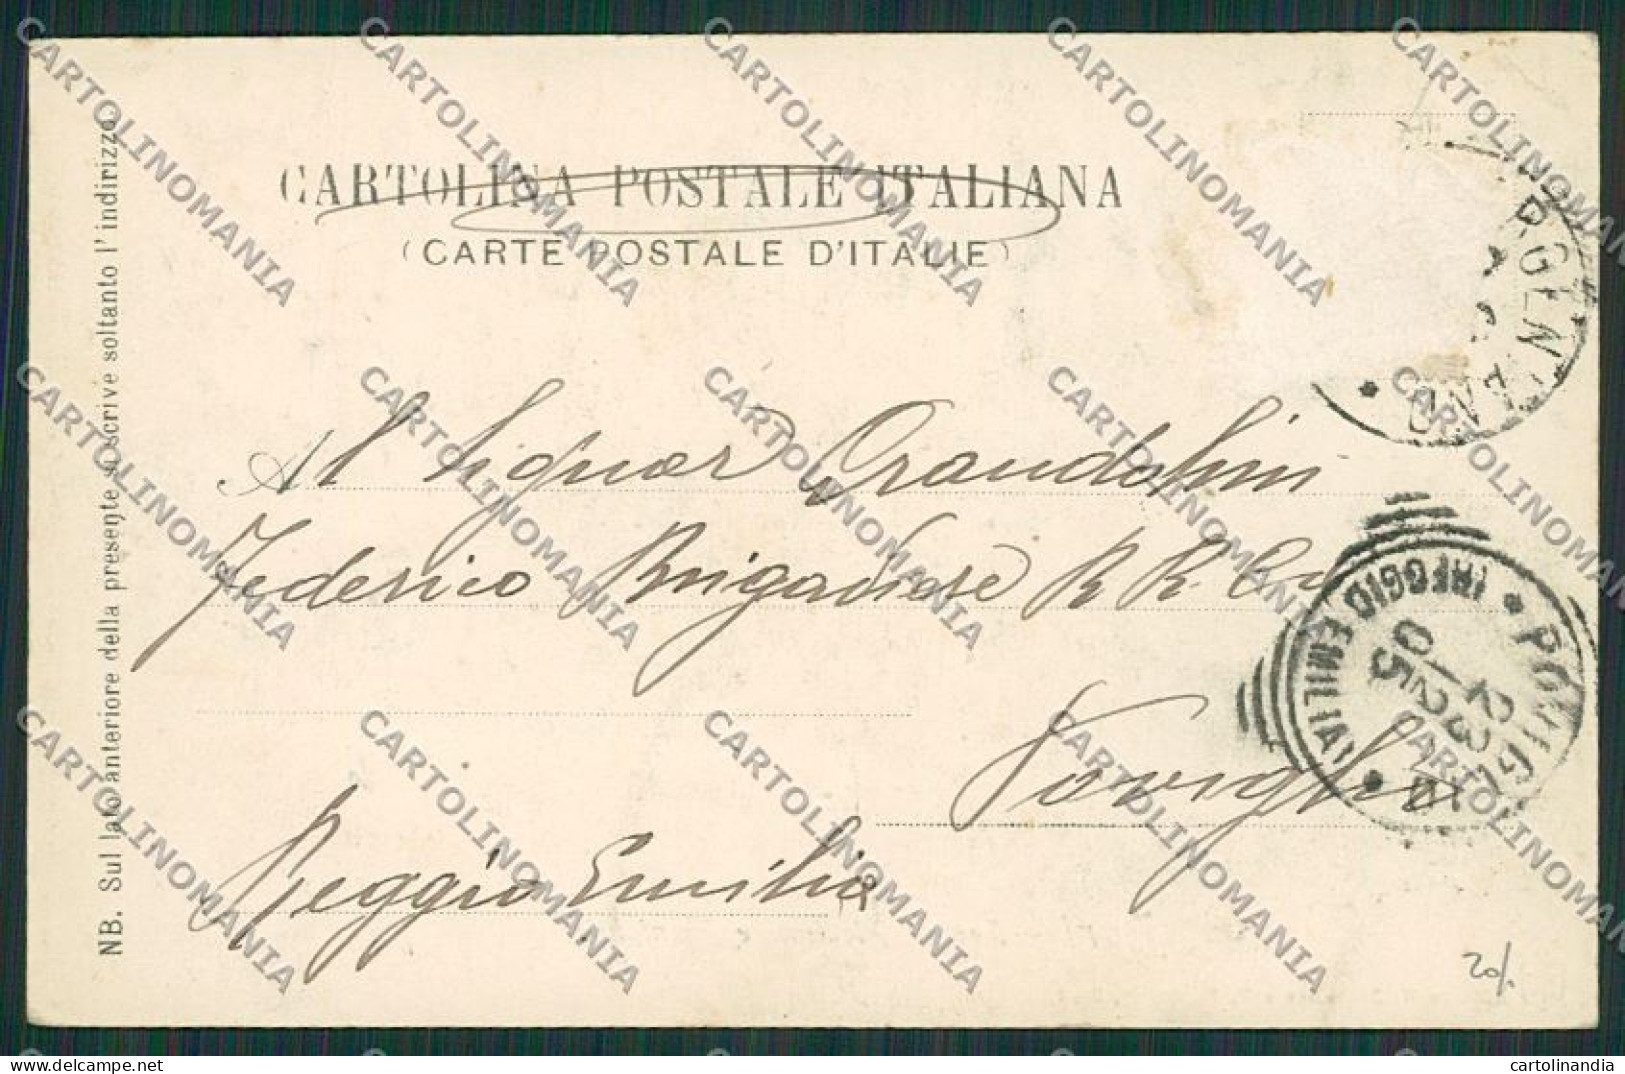 CARTOLINA POSTALE ITALIANA
(CARTE POSTALE D'ITALIE)
NB. Sul lato anteriore della presente si scrive soltanto l'indirizzo
Al Signor Grandolini
Federico Brigadiere R R. Cc
Poviglio
Reggio Emilia
POVIGLIO
(REGGIO EMILIA)
23
05
20/.
CARTOLINOMANIA
cartolinandia